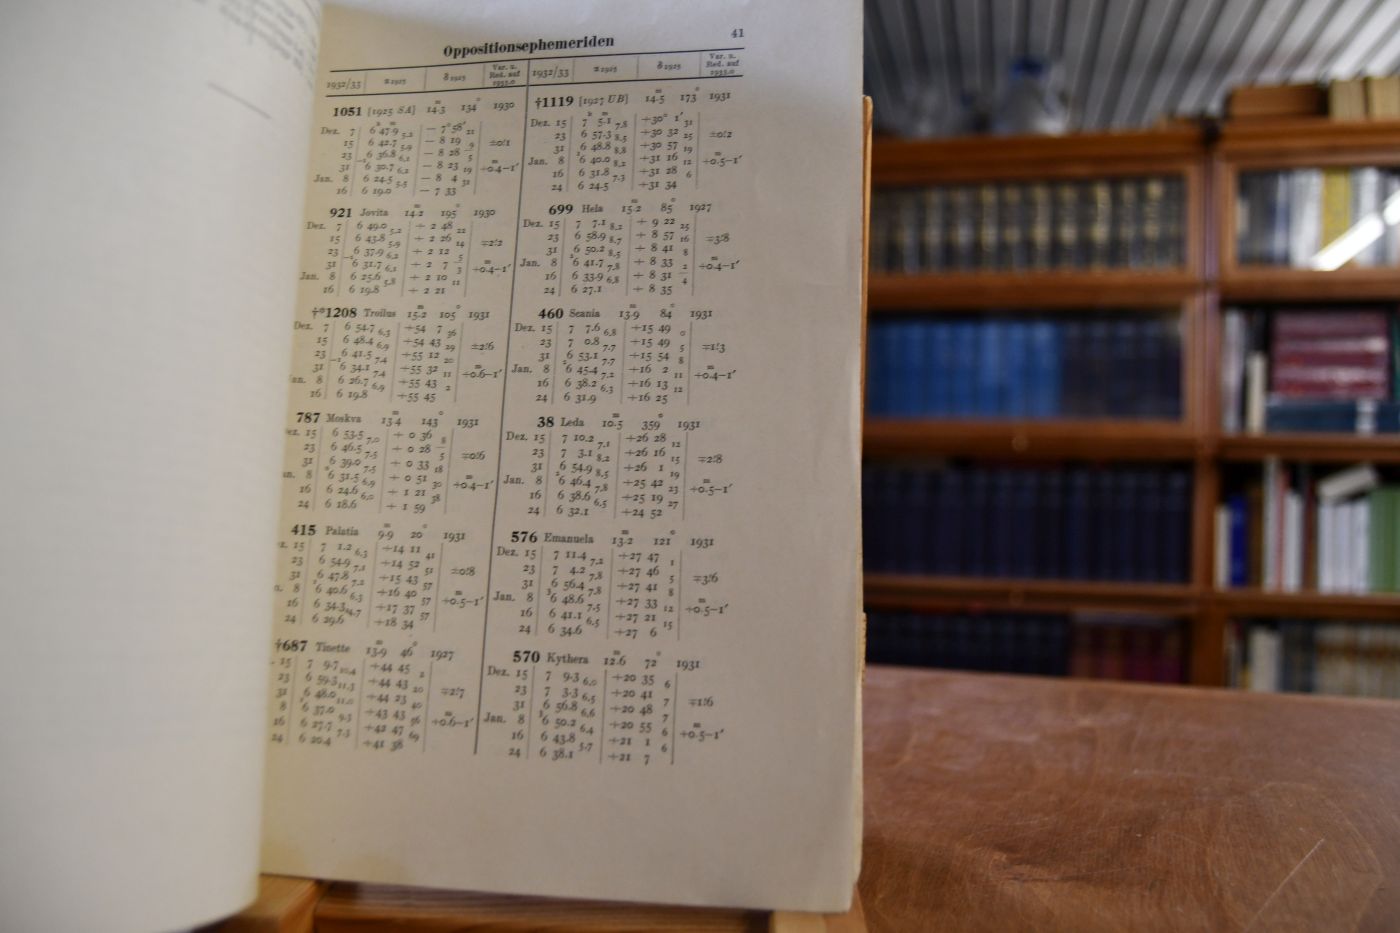 41
Oppositionsephemeriden
1932/33 α 1925 δ 1925 Var. u. Red. auf 1933.0
1051 [1925 SA] 14.3 134° 1930
Dez. 7 6 47.9 5.2 − 7°58′ 21
15 6 42.7 5.9 − 8 19 9
23 6 36.8 6.1 − 8 28 5
31 6 30.7 6.2 − 8 23 19
Jan. 8 6 24.5 5.5 − 8 4 31
16 6 19.0 − 7 33
921 Jovita 14.2 195° 1930
Dez. 7 6 49.0 5.2 + 2 48 22
15 6 43.8 5.9 + 2 26 14
23 6 37.9 6.2 + 2 12 5
31 6 31.7 6.1 + 2 7 3
Jan. 8 6 25.6 5.8 + 2 10 11
16 6 19.8 + 2 21
†*1208 Troilus 15.2 105° 1931
Dez. 7 6 54.7 6.3 +54 7 36
15 6 48.4 6.9 +54 43 29
23 6 41.5 7.4 +55 12 20
31 6 34.1 7.4 +55 32 11
8 6 26.7 6.9 +55 43 2
16 6 19.8 +55 45
787 Moskva 13.4 143° 1931
15 6 53.5 7.0 + 0 36 8
23 6 46.5 7.5 + 0 28 5
31 6 39.0 7.5 + 0 33 18
8 6 31.5 6.9 + 0 51 30
16 6 24.6 6.0 + 1 21 38
24 6 18.6 + 1 59
415 Palatia 9.9 20° 1931
15 7 1.2 6.3 +14 11 41
23 6 54.9 7.1 +14 52 51
31 6 47.8 7.2 +15 43 57
8 6 40.6 6.3 +16 40 57
16 6 34.3 4.7 +17 37 57
24 6 29.6 +18 34
†687 Tinette 13.9 46° 1927
15 7 9.7 10.4 +44 45 2
23 6 59.3 11.3 +44 43 20
31 6 48.0 11.0 +44 23 40
8 6 37.0 9.3 +43 43 56
16 6 27.7 7.3 +42 47 69
24 6 20.4 +41 38
1932/33 α 1925 δ 1925 Var. u. Red. auf 1933.0
†1119 [1927 UB] 14.5 173° 1931
Dez. 15 7 5.1 7.8 +30° 1′ 31
23 6 57.3 8.5 +30 32 25
31 6 48.8 8.8 +30 57 19
Jan. 8 6 40.0 8.2 +31 16 12
16 6 31.8 7.3 +31 28 6
24 6 24.5 +31 34
699 Hela 15.2 85° 1927
Dez. 15 7 7.1 8.2 + 9 22 25
23 6 58.9 8.7 + 8 57 16
31 6 50.2 8.5 + 8 41 8
Jan. 8 6 41.7 7.8 + 8 33 2
16 6 33.9 6.8 + 8 31 4
24 6 27.1 + 8 35
460 Scania 13.9 84° 1931
Dez. 15 7 7.6 6.8 +15 49 0
23 7 0.8 7.7 +15 49 5
31 6 53.1 7.7 +15 54 8
Jan. 8 6 45.4 7.2 +16 2 11
16 6 38.2 6.3 +16 13 12
24 6 31.9 +16 25
38 Leda 10.5 359° 1931
Dez. 15 7 10.2 7.1 +26 28 12
23 7 3.1 8.2 +26 16 15
31 6 54.9 8.5 +26 1 19
Jan. 8 6 46.4 7.8 +25 42 23
16 6 38.6 6.5 +25 19 27
24 6 32.1 +24 52
576 Emanuela 13.2 121° 1931
Dez. 15 7 11.4 7.2 +27 47 1
23 7 4.2 7.8 +27 46 5
31 6 56.4 7.8 +27 41 8
Jan. 8 6 48.6 7.5 +27 33 12
16 6 41.1 6.5 +27 21 15
24 6 34.6 +27 6
570 Kythera 12.6 72° 1931
Dez. 15 7 9.3 6.0 +20 35 6
23 7 3.3 6.5 +20 41 7
31 6 56.8 6.6 +20 48 7
Jan. 8 6 50.2 6.4 +20 55 6
16 6 43.8 5.7 +21 1 6
24 6 38.1 +21 7